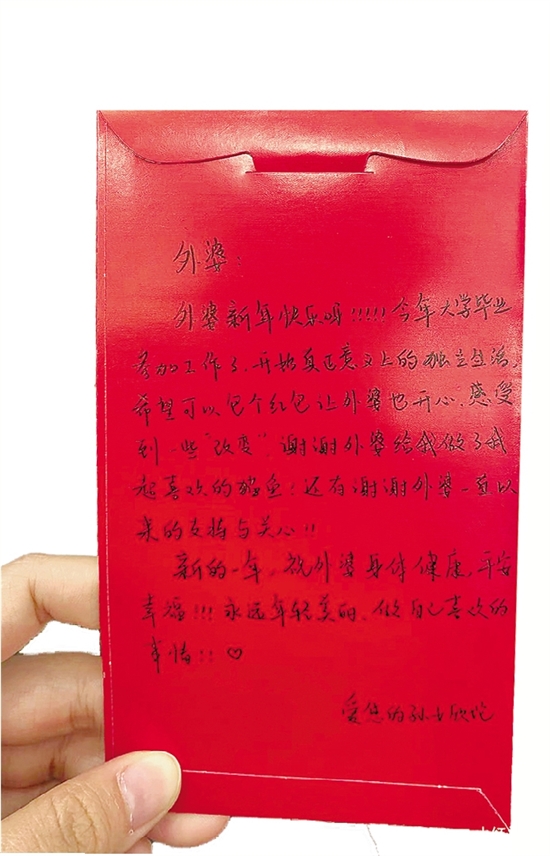 外婆：
外婆新年快乐呀!!!!!今年大学毕业
参加工作了，开始真正意义上的独立生活，
希望可以包个红包让外婆也开心，感受
到一些“改变”，谢谢外婆给我做了我
超喜欢的鱼！还有谢谢外婆一直以
来的支持与关心!!
新的一年，祝外婆身体健康，平安
幸福!!!永远年轻美丽，做自己喜欢的
事情!!♡
爱您的孙女欣